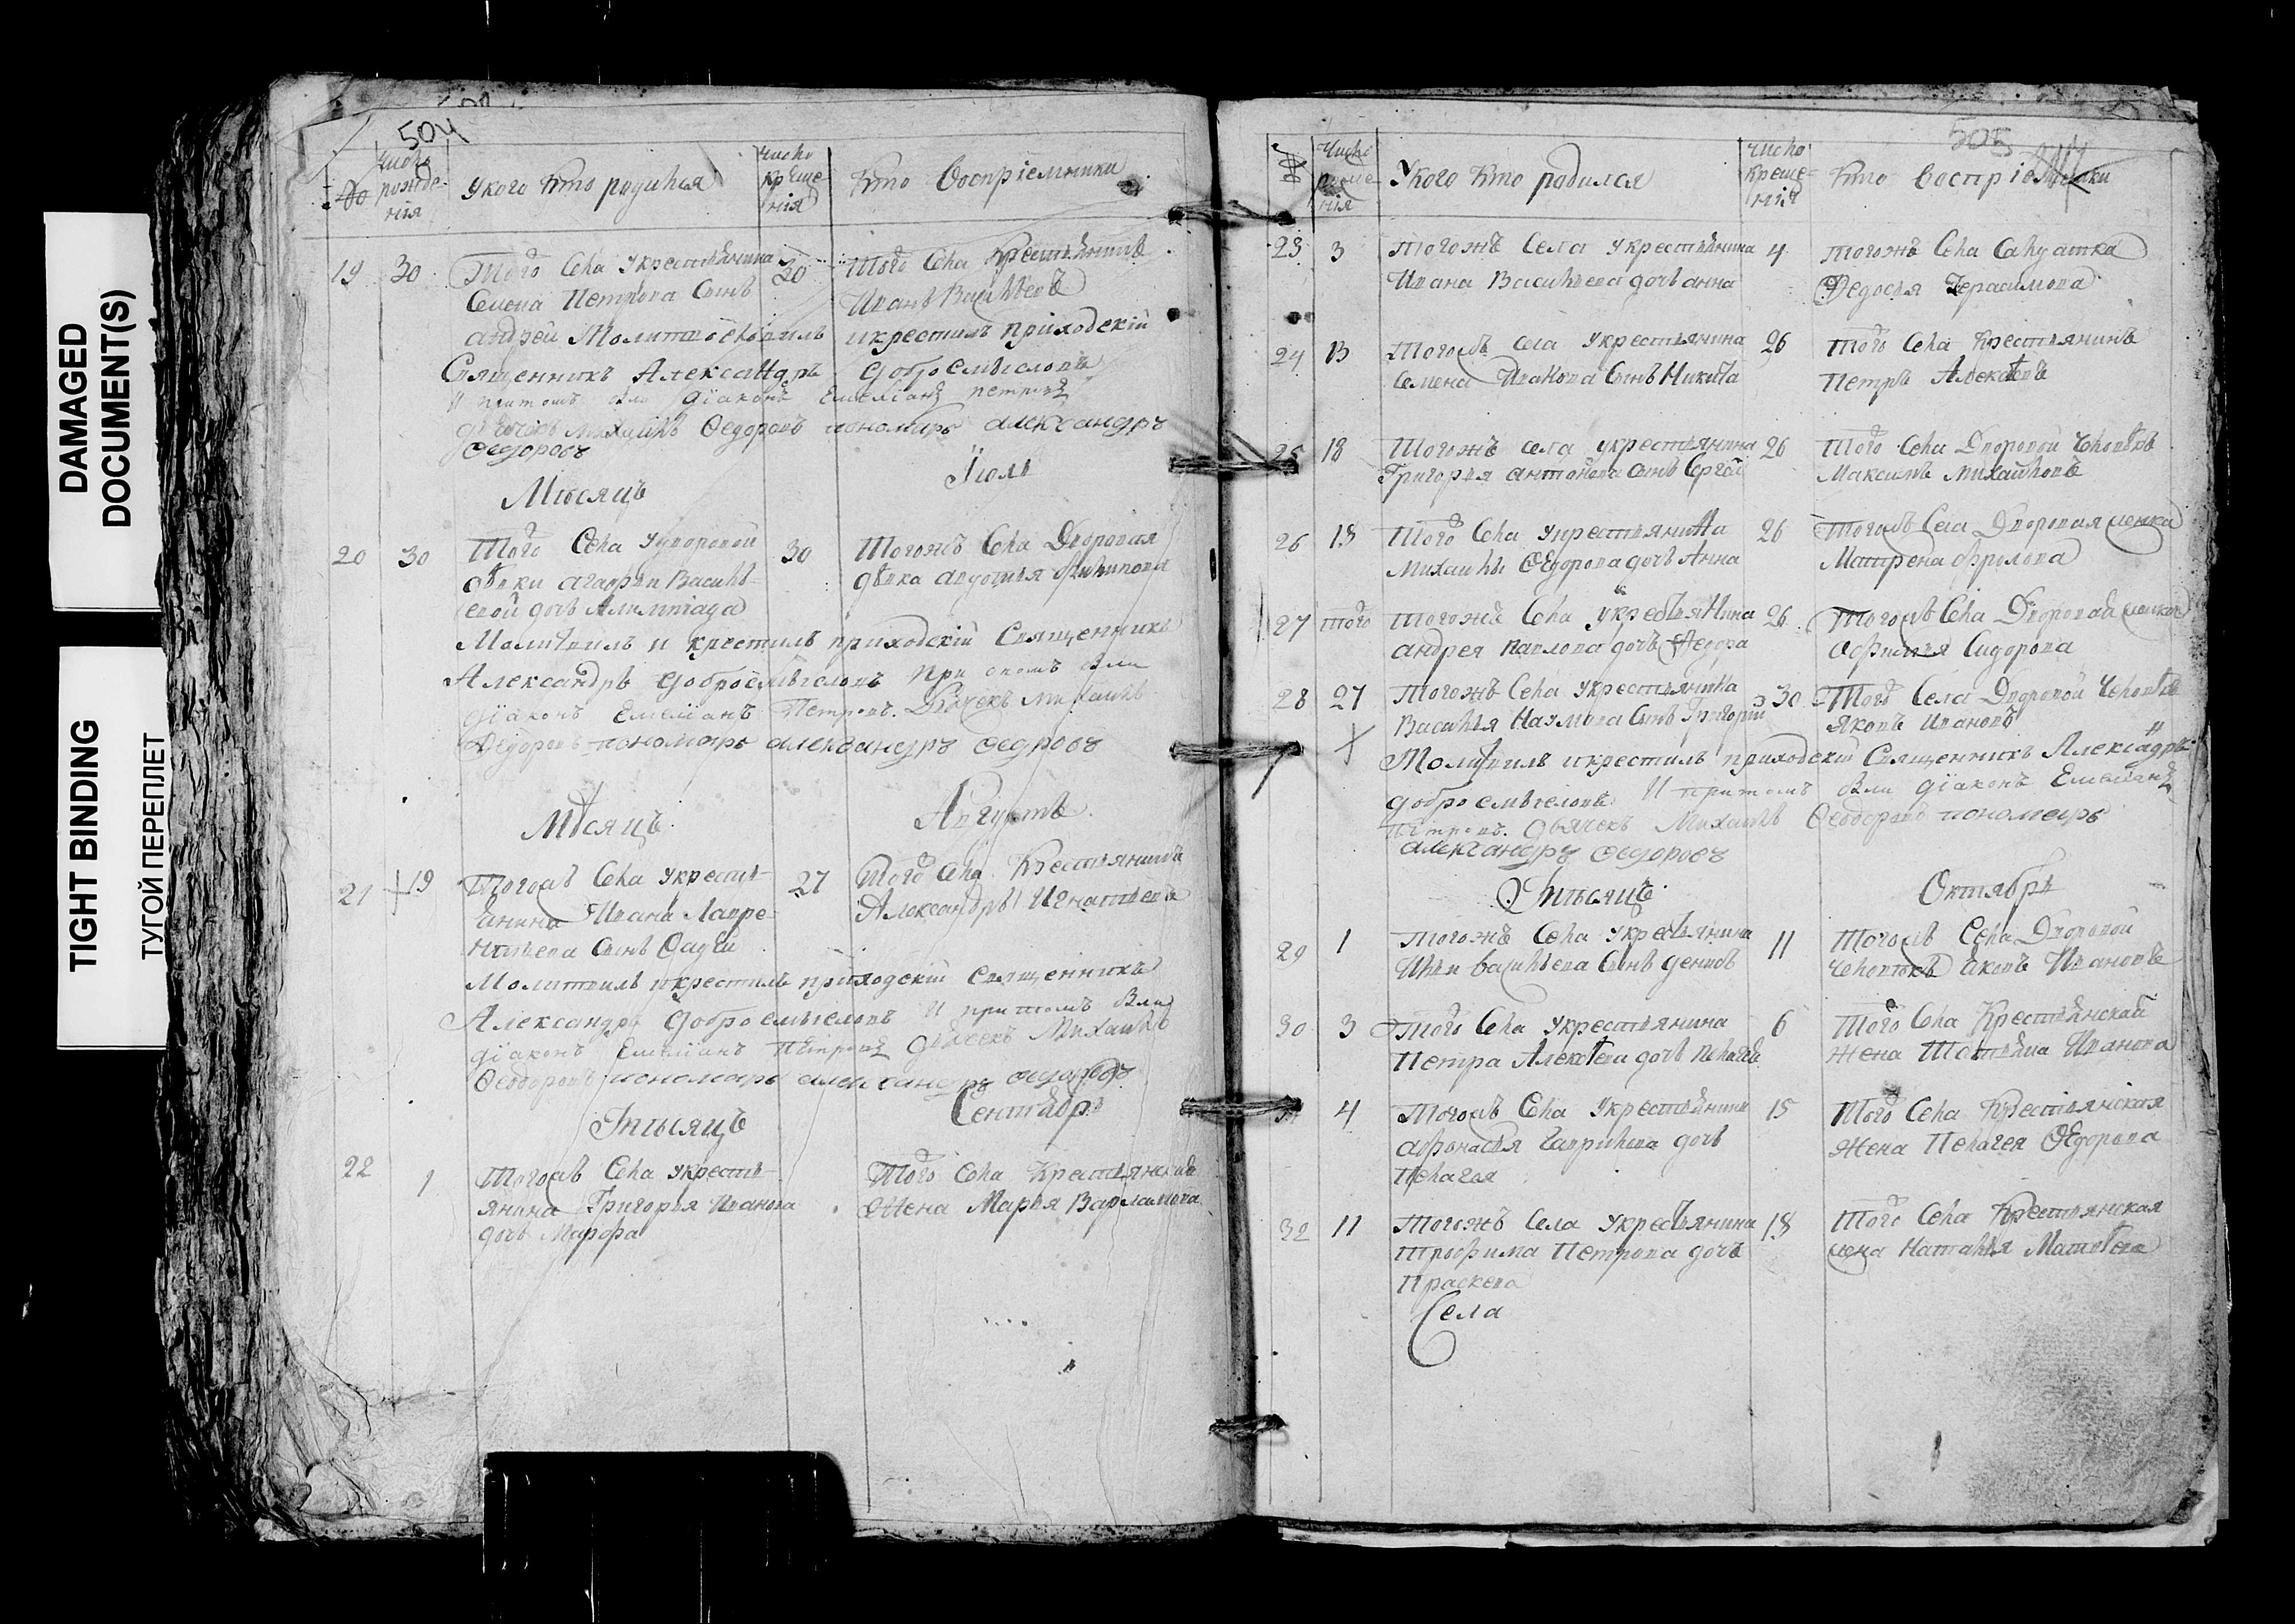 DAMAGED
DOCUMENT(S)
TIGHT BINDING
ТУГОЙ ПЕРЕПЛЕТ
504
№
число рожде-
нія
у кого кто родился
число
креще-
нія
кто воспріемники
19 30 Того села у крестьянина 30 Того села крестьянинъ
Семена Петрова сынъ Иванъ Васильевъ
андрей Молитвовалъ и крестилъ приходскій
Священникъ Александръ Добросмысловъ
И притомъ были діаконъ Емеліанъ петровъ
дьячекъ михаилъ Ѳедоровъ пономарь александръ
Ѳедоровъ
Мѣсяцъ Іюль
20 30 Того села у дворовой 30 Тогожъ села Дворовая
дѣвки агафьи Василь- дѣвка авдотья филипова
евой дочь Алимпіада
Молитвилъ и крестилъ приходскій Священникъ
Александръ Добросмысловъ при ономъ были
діаконъ Емеліанъ Петровъ. Дьячекъ Михаилъ
Ѳедоровъ пономарь александръ Ѳедровъ
Мѣсяцъ Августъ
21 19 Тогожъ села у крестья- 27 Того села Крестьянинъ
анина Ивана Лавре- Александръ Игнатьевъ
нтьева сынъ Фадѣй
Молитвилъ и крестилъ приходскій священникъ
Александръ Добросмысловъ И притомъ были
діаконъ Емеліанъ Петровъ дьячекъ Михаилъ
Ѳеодоровъ пономарь александръ Ѳедоровъ
Мѣсяцъ Сентябрь
22 1 Тогожъ села у кресть- Того села Крестьянская
янина Григорья Иванова Жена Марья Варламова
дочь Марфа
505
№
число
рожде-
нія
У кого кто родился
число
креще-
нія
кто воспріемники
23 3 Тогожъ села у крестьянина 4 Тогожъ села Салдатка
Ивана Васильева дочь анна Федосья Герасимова
24 13 Тогожъ села у крестьянина 26 Того села крестьянинъ
Семена Иванова сынъ Никита Петръ Алексѣевъ
25 18 Тогожъ села у крестьянина 26 Того села Дворовой человѣкъ
Григорья антонова сынъ Сергѣй Максимъ михайловъ
26 18 Того села у крестьянина 26 Тогожъ села Дворовая женка
Михаилы Ѳедорова дочь Анна Матрена фролова
27 того Тогожъ села у крестьянина 26 Тогожъ села Дворовая женка
андрея павлова дочь Федора Афимья Сидорова
28 27 Тогожъ села у крестьянина 30 Того села Дворовой человѣкъ
Василья Наумова сынъ Григорій Яковъ Ивановъ
Молитвилъ и крестилъ приходскій Священникъ Александръ
добросмысловъ И притомъ были діаконъ Емеліанъ
петровъ. дьячекъ Михаилъ Ѳеодоровъ пономарь
александръ Ѳедоровъ
Мѣсяцъ Октябрь
29 1 Тогожъ села у крестьянина 11 Тогожъ села Дворовой
Ильи васильева сынъ денисъ человѣкъ яковъ Ивановъ
30 3 Того села у крестьянина 6 Того села Крестьянской
Петра Алексѣева дочь пелагея жена Татьяна Иванова
31 4 Тогожъ села у крестьянина 15 Того села Крестьянская
афонасья Гаврилева дочь Жена Пелагея Ѳедорова
Пелагея
32 11 Тогожъ села у крестьянина 18 Того села Крестьянская
трофима Петрова дочь жена Наталья Матвѣева
Праскева
Села